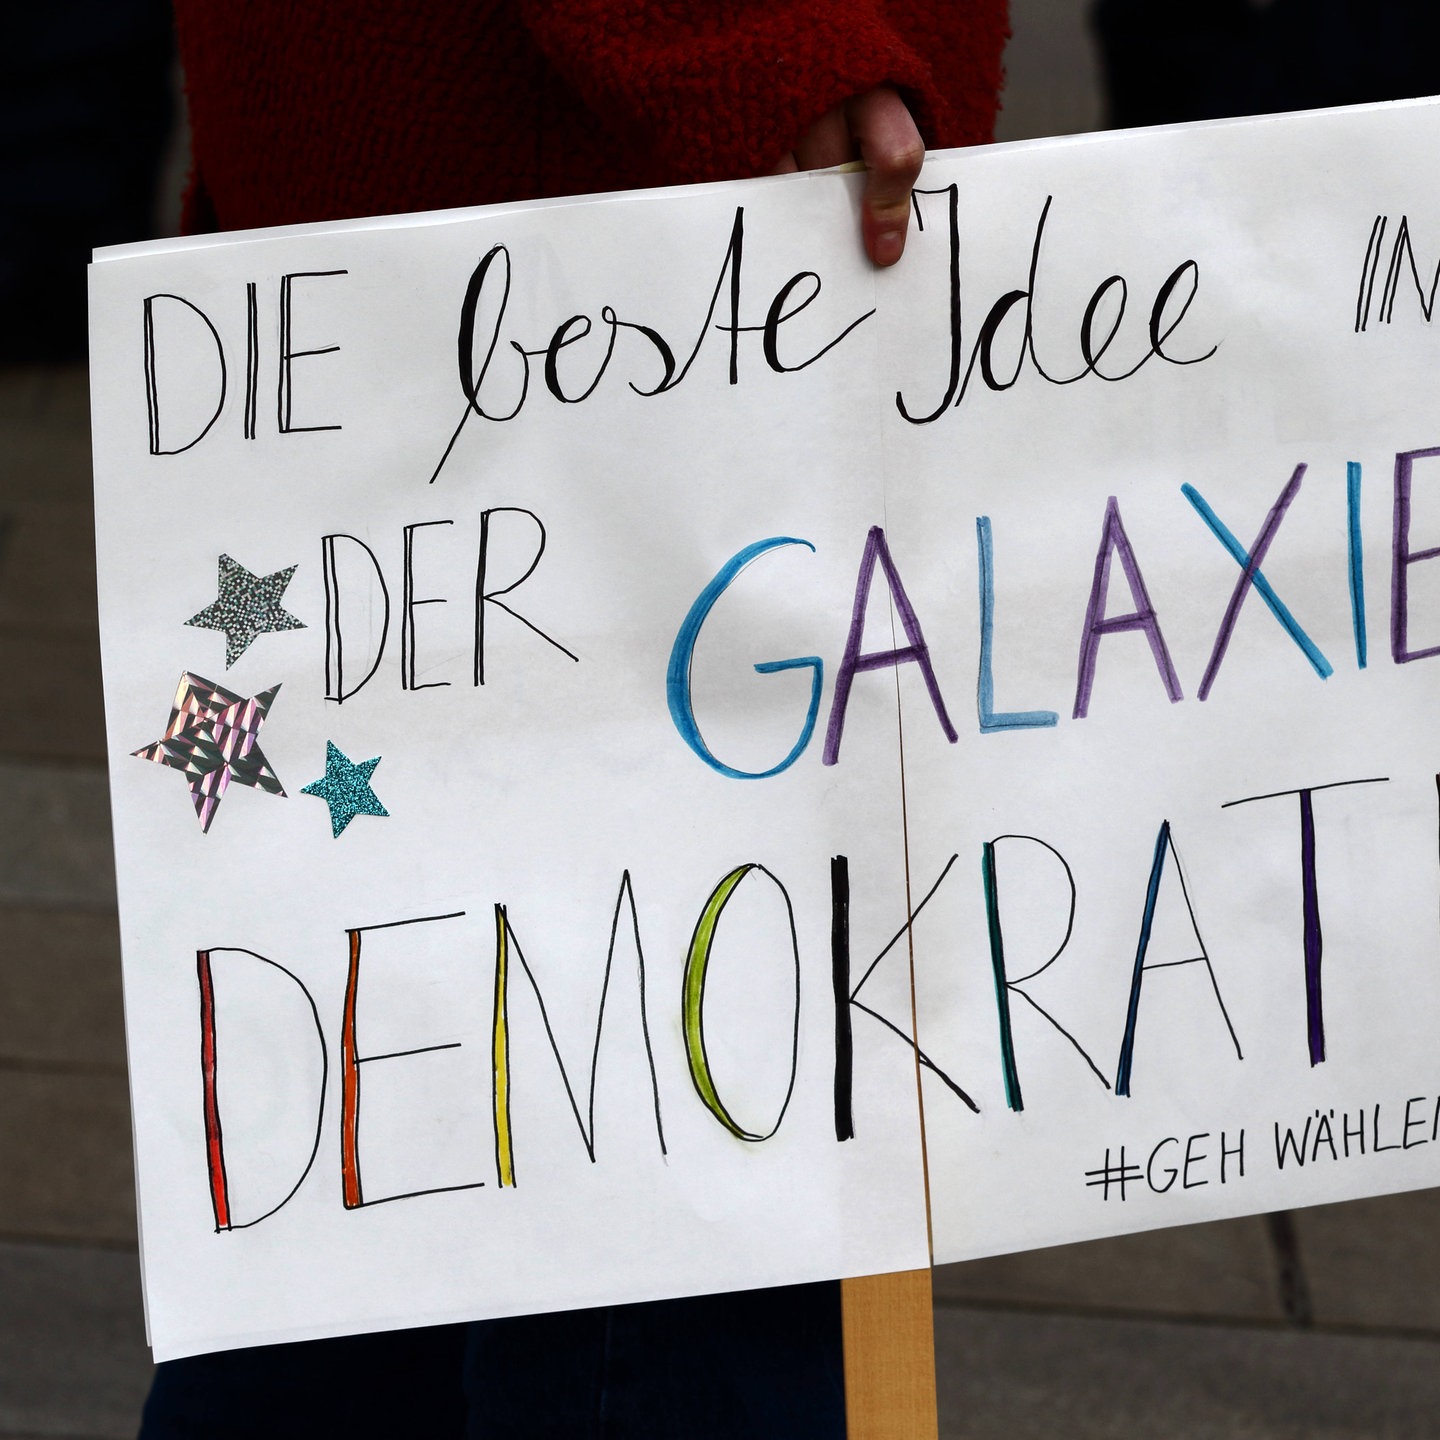 DIE beste Idee IN
DER GALAXIE
DEMOKRATI
#GEH WÄHLEN